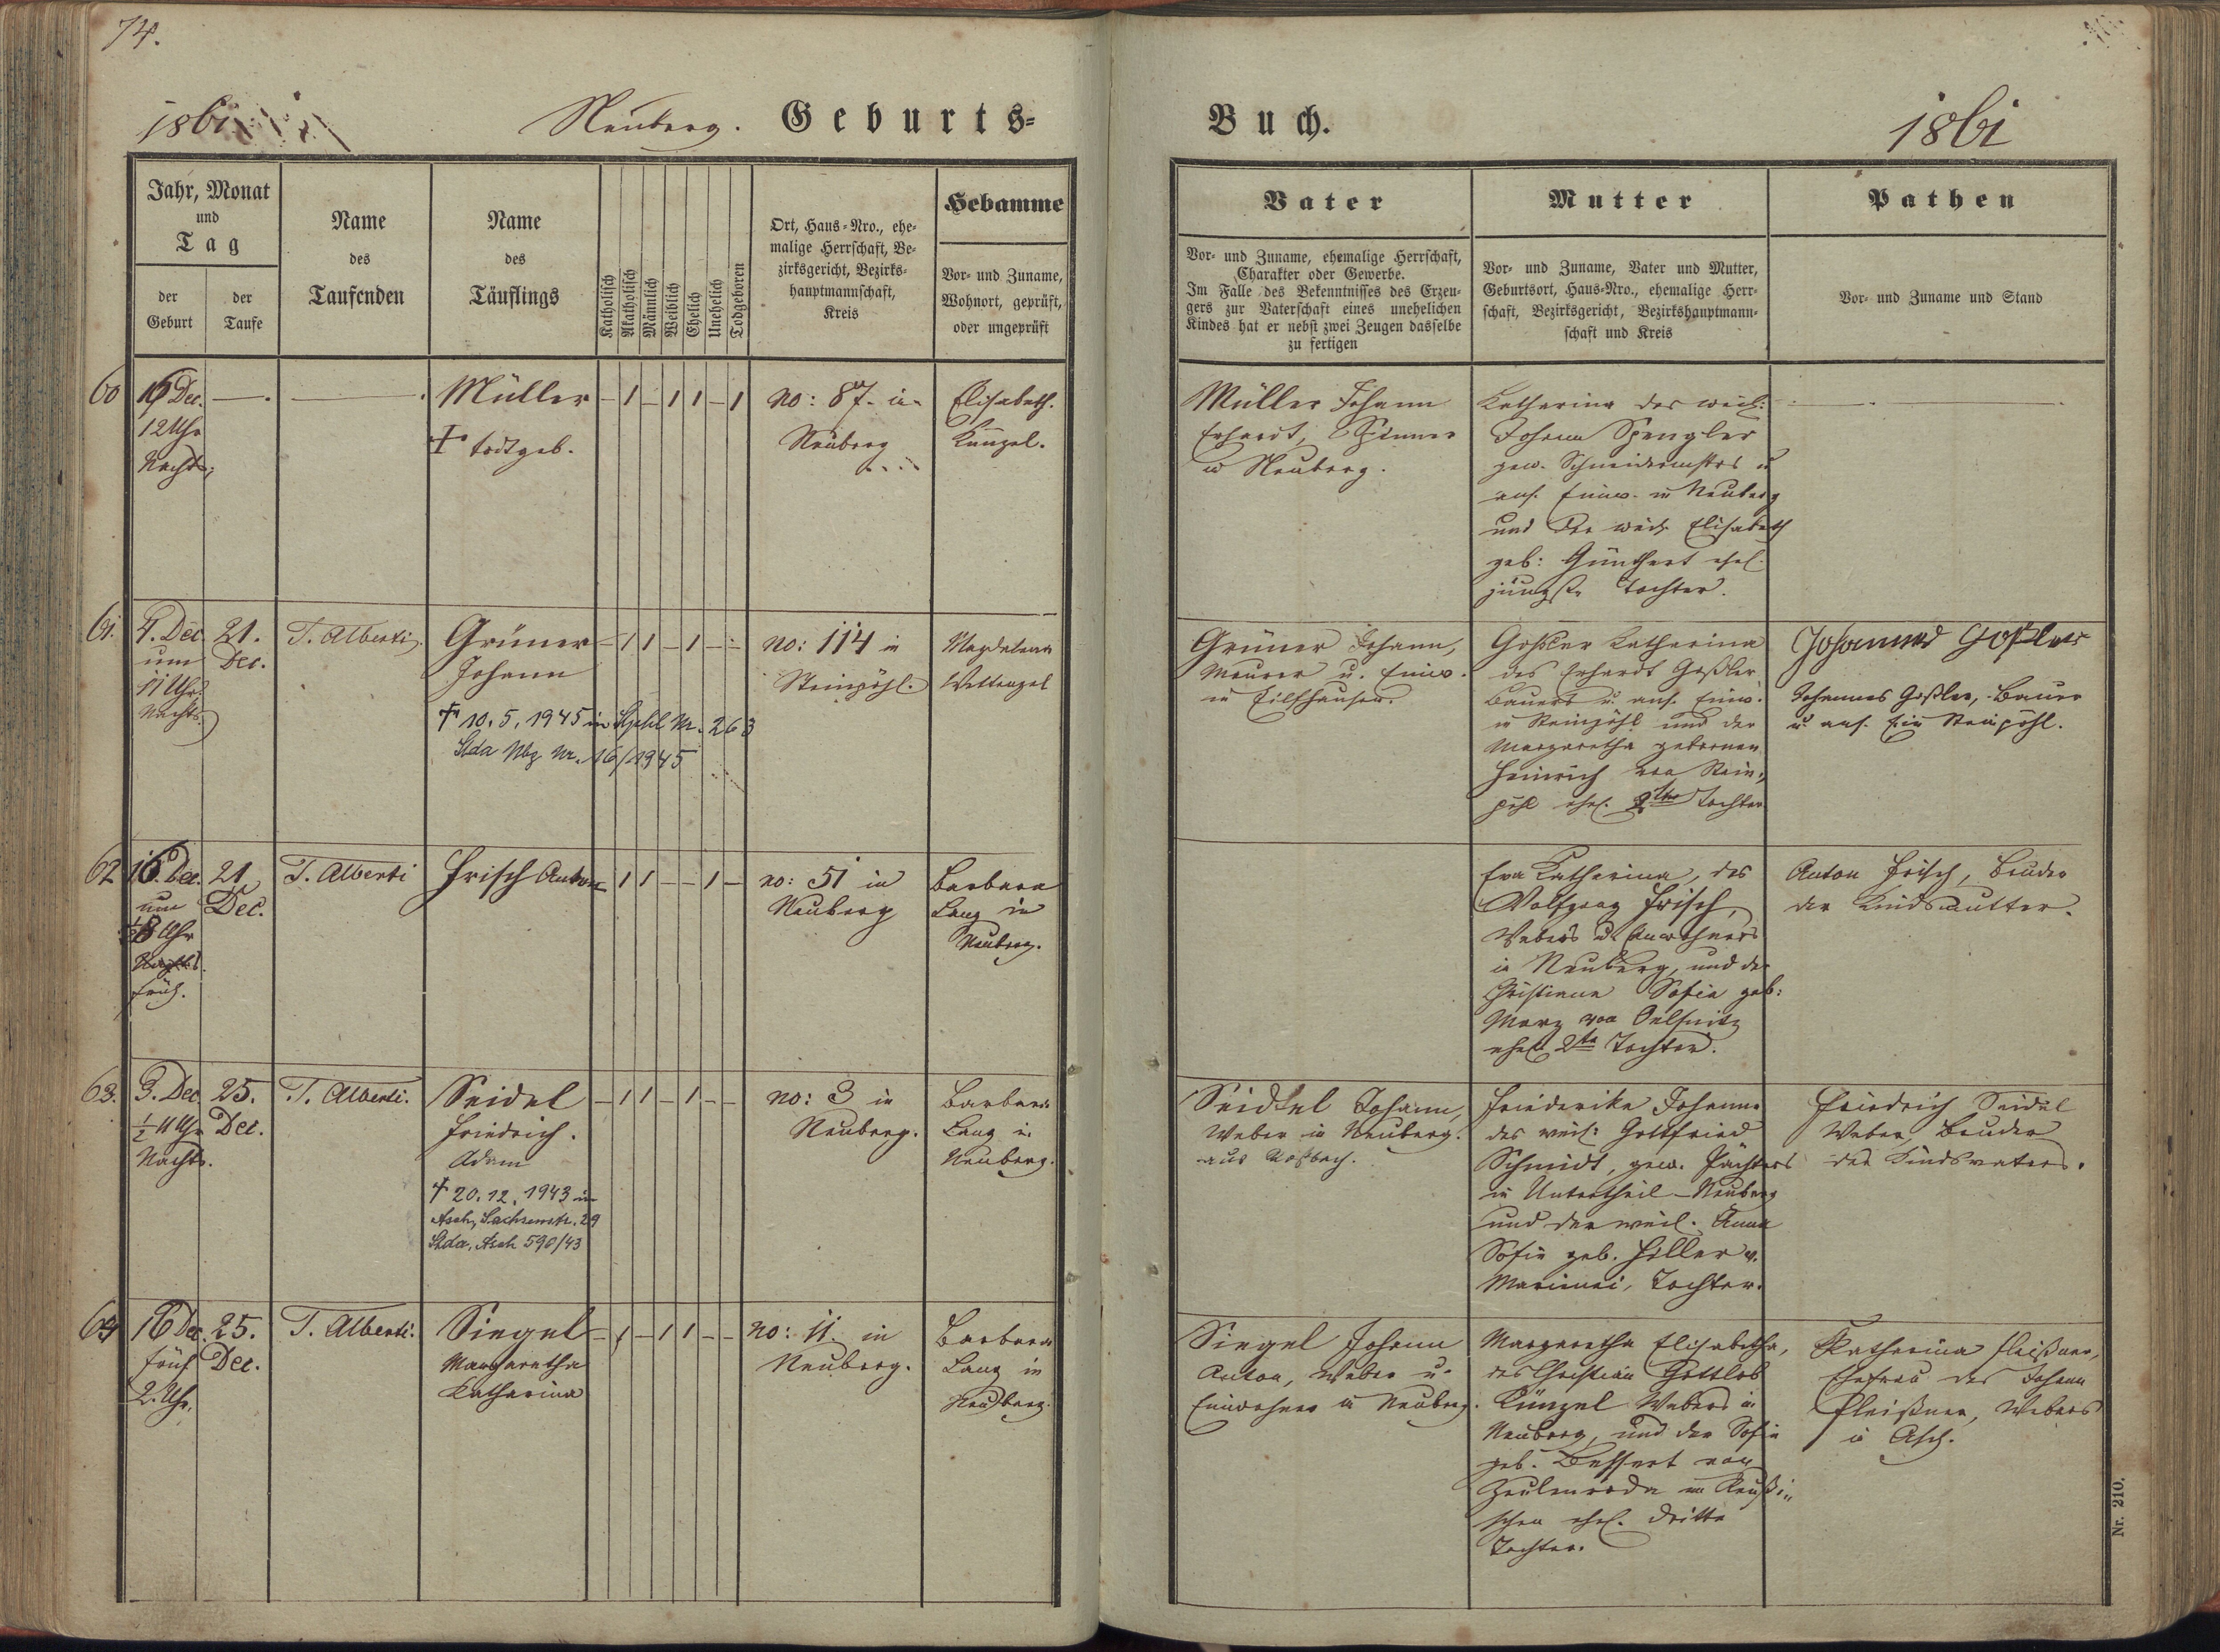 74.
1861
Neuberg. Geburts=
Jahr, Monat
und
Tag
der
Geburt
der
Taufe
Name
des
Taufenden
Name
des
Täuflings
Katholisch
Akatholisch
Männlich
Weiblich
Ehelich
Unehelich
Todgeboren
Ort, Haus=Nro., ehe=
malige Herrschaft, Be=
zirksgericht, Bezirks=
hauptmannschaft,
Kreis
Hebamme
Vor= und Zuname,
Wohnort, geprüft,
oder ungeprüft
60
Dec.
12 Uhr
Nachts
Müller
† todtgeb.
— 1 — 1 1 — 1
No: 87. in
Neuberg
Elisabeth.
Künzel.
61.
4. Dec.
um
11 Uhr
Nachts.
21.
Dec.
T. Alberti.
Grüner
Johann
† 10. 5. 1945 in Stphl Nr. 263
Stda Nbg Nr. 16/1945
— 1 1 — 1 — —
No: 114 in
Steinpöhl.
Magdalena
Wettengel
62
16. Dec.
um
Uhr
früh.
21
Dec.
T. Alberti
Frisch Anton
— 1 1 — — 1 —
no: 51 in
Neuberg
Barbara
Lang in
Neuberg.
63.
3. Dec
½ 11 Uhr
Nachts.
25.
Dec.
T. Alberti.
Seidel
Friedrich.
Adam
† 20. 12. 1943 in
Asch, Sachsenstr. 29
Stda. Asch 590/43
— 1 1 — 1 — —
no: 3 in
Neuberg.
Barbara
Lang in
Neuberg.
64
16 Dec.
früh
2. Uhr.
25.
Dec.
T. Alberti.
Siegel
Margaretha
Katharina
— 1 — 1 1 — —
no: 11. in
Neuberg.
Barbara
Lang in
Neuberg.
Buch.
1861
Vater
Vor= und Zuname, ehemalige Herrschaft,
Charakter oder Gewerbe.
Im Falle des Bekenntnisses des Erzeu=
gers zur Vaterschaft eines unehelichen
Kindes hat er nebst zwei Zeugen dasselbe
zu fertigen
Mutter
Vor= und Zuname, Vater und Mutter,
Geburtsort, Haus=Nro., ehemalige Herr=
schaft, Bezirksgericht, Bezirkshauptmann=
schaft und Kreis
Pathen
Vor= und Zuname und Stand
Müller Johann
Erhardt, Spinner
in Neuberg.
Katharina des weil:
Johann Spengler
gew. Schneidermstrs u
ans. Einw. in Neuberg
und der weil. Elisabeth
geb: Günthert ehel.
jüngste Tochter.
Grüner Johann,
Maurer u. Einw.
in
Goßler Katharina
des Erhardt Goßler
Bauers u. ans. Einw.
in Steinpöhl und der
Margaretha gebornen
Heinrich von Stein=
pöhl ehel. 2te Tochter
Johannes Goßler
Johannes Goßler, Bauer
u. ans. Steinpöhl.
Eva Katharina, des
Wolfgang Frisch,
Webers u. Einwohners
in Neuberg, und der
Christiana Sofia geb:
Marx von Oelsnitz
ehel. 2te Tochter.
Anton Frisch, Bruder
der Kindsmutter.
Seidel Johann,
Weber in Neuberg.
aus Roßbach.
Friederika Johanna
des weil: Gottfried
Schmidt, gew. Pächters
in Untertheil-Neuberg
und der weil. Anna
Sofie geb. Hiller v.
Tochter.
Friedrich Seidel
Weber, Bruder
des Kindsvaters.
Siegel Johann
Anton, Weber u.
Einwohner in Neuberg.
Margaretha Elisabetha,
des Christian Gottlob
Künzel Webers in
Neuberg, und der Sofie
geb. von
Zeulenroda im Reußi=
schen ehel. dritte
Tochter.
Katharina Pleißner,
Ehefrau des Johann
Pleißner, Webers
in Asch.
Nr. 210.